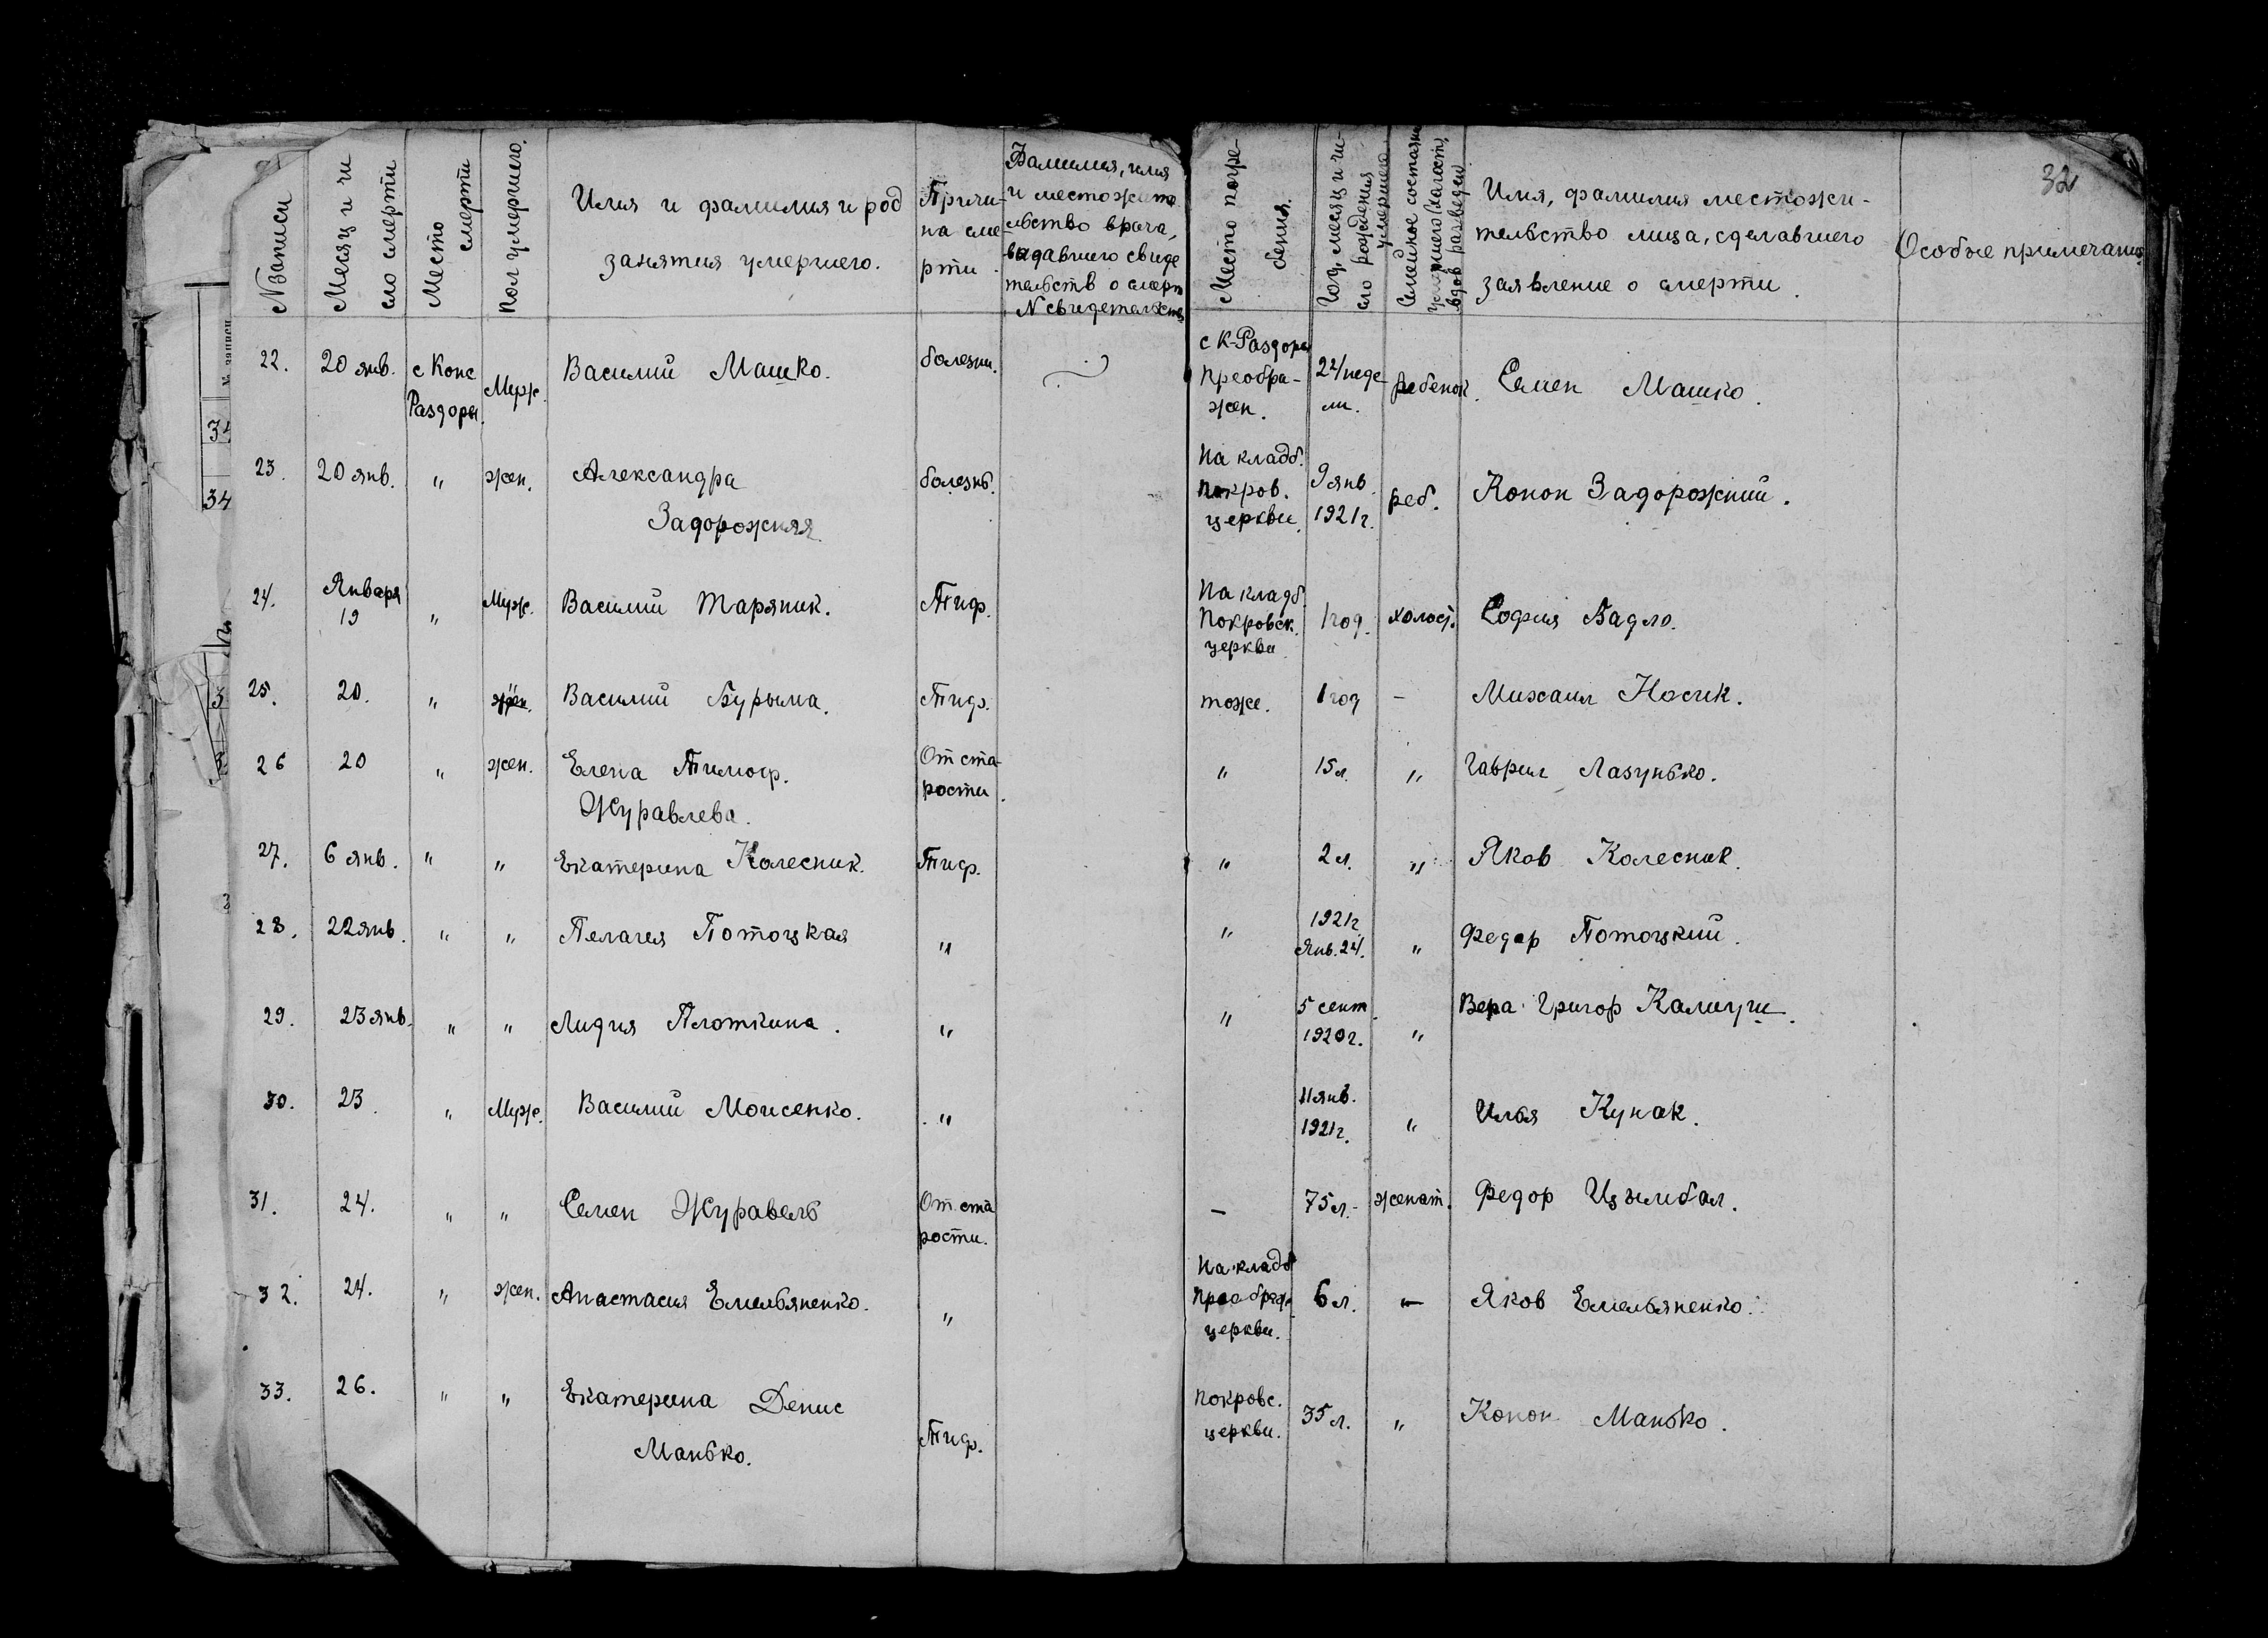 32
№ записи
Месяц и чи
сло смерти
Место
смерти
Пол умершего.
Имя и фамилия и род
занятия умершего.
Причи-
на сме
рти.
Фамилия, имя
и местожите
льство врача,
выдавшего свиде
тельств о смерт
№ свидетельств
Место погре-
бения.
Год, месяц и чи-
сло рождения
умершего
Семейное состояни
умершего (холост,
вдов разведен
Имя, фамилия местожи-
тельство лица, сделавшего
заявление о смерти.
Особые примечания
22. 20 янв. с Конс Раздоры. Муж. Василий Машко. болезни. с К-Раздоры Преобра-жен. 2 1/2 неде ли. ребенок. Семен Машко.
23. 20 янв. " жен. Александра Задорожняя. болезнь. На кладб. Покров. церкви. 9 янв. 1921 г. реб. Конон Задорожний.
24. Января 19 " Муж. Василий Таряник. Тиф. На кладб. Покровск. церкви 1 год. холост. София Бадло.
25. 20. " жен. Василий Бурыма. Тиф. тоже. 1 год - Михаил Носик.
26 20 " жен. Елена Тимоф. Журавлева. От ста-рости. " 15 л. " Гаврил Лазунько.
27. 6 янв. " " Екатерина Колесник. Тиф. " 2 л. " Яков Колесник.
28. 22 янв. " " Пелагея Потоцкая " " 1921 г. Янв. 24. " Федор Потоцкий.
29. 23 янв. " " Лидия Плоткина. " " 5 сент. 1920 г. " Вера Григор
30. 23. " Муж. Василий Моисенко. " 11 янв. 1921 г. " Илья Кунак.
31. 24. " " Семен Журавель От ста рости. - 75 л. женат. Федор Цымбал.
32. 24. " жен. Анастасия Емельяненко. " На кладб Преображ. церкви. 6 л. - Яков Емельяненко.
33. 26. " " Екатерина Денис Манько. Тиф. Покровс. церкви. 35 л. " Конон Манько.